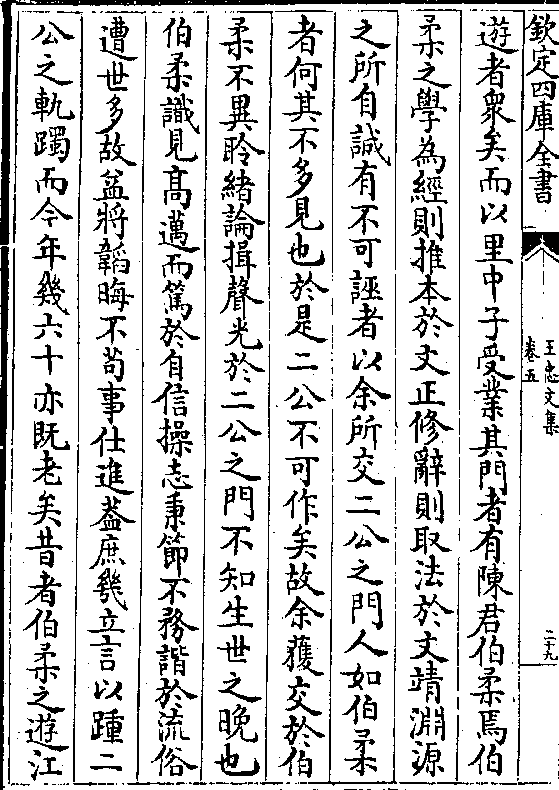 欽定四庫全書
王忠文集
卷五
二十九
遊者衆矣而以里中子受業其門者有陳君伯柔焉伯
柔之學為經則推本於文正修辭則取法於文靖淵源
之所自誠有不可誣者以余所交二公之門人如伯柔
者何其不多見也於是二公不可作矣故余獲交於伯
柔不異聆緒論揖聲光於二公之門不知生世之晚也
伯柔識見髙邁而篤於自信操志秉節不務諧於流俗
遭世多故益將韜晦不苟事仕進葢庶㡬立言以踵二
公之軌躅而今年幾六十亦既老矣昔者伯柔之遊江